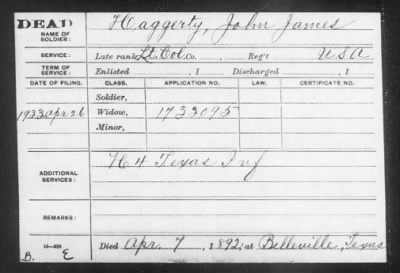 DEAD
NAME OF SOLDIER: Haggerty, John James
SERVICE: Late rank Lt. Col, Co. , Reg't USA
TERM OF SERVICE: Enlisted , 1 Discharged , 1
DATE OF FILING. CLASS. APPLICATION NO. LAW. CERTIFICATE NO.
Soldier,
1933 Apr 26 Widow, 1733095
Minor,
ADDITIONAL SERVICES: H 4 Texas Inf
REMARKS:
Died Apr. 7, 1892, at Belleville, Texas
B. E